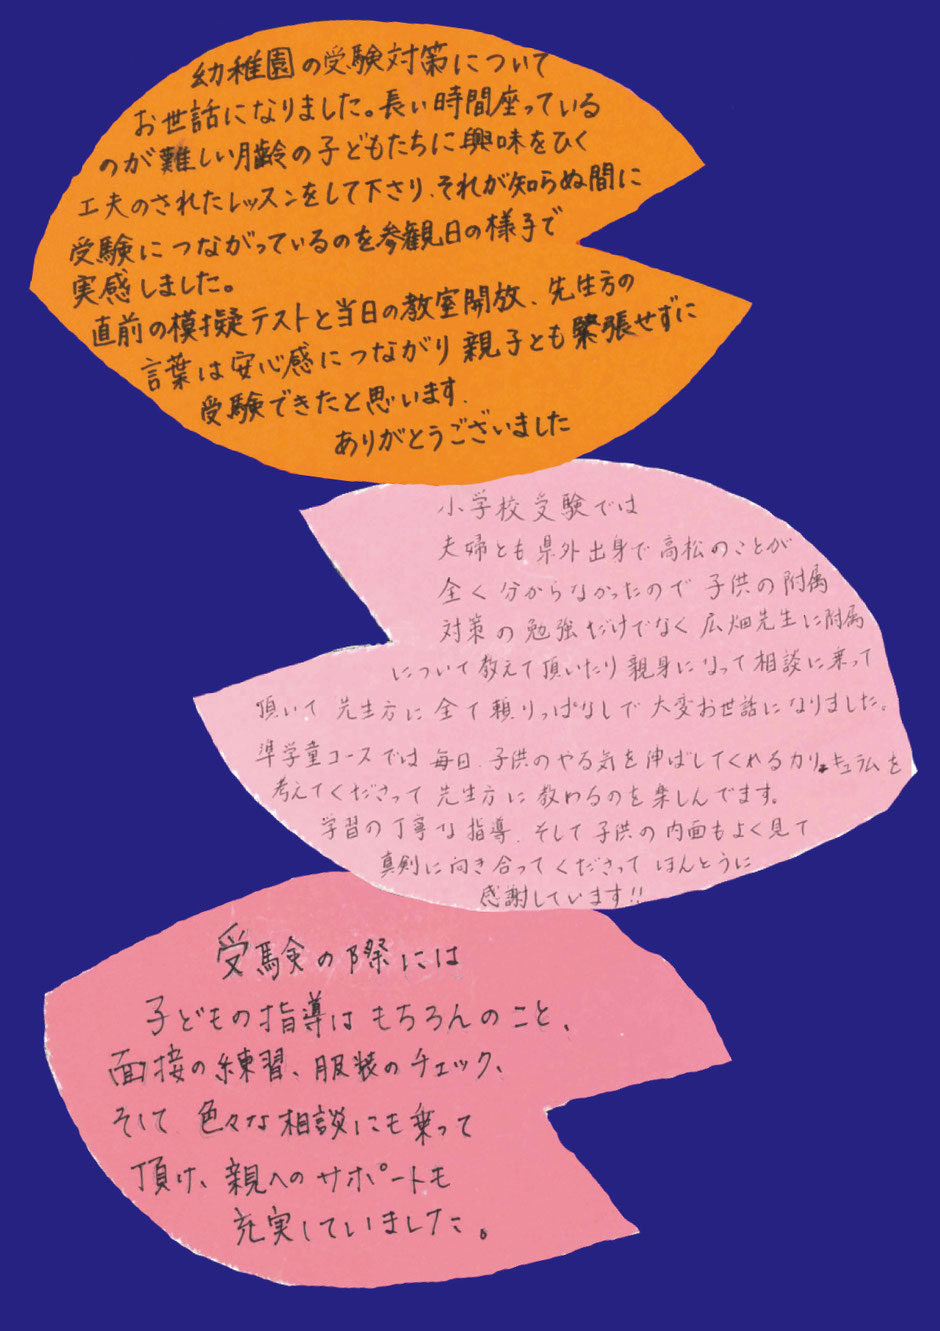 幼稚園の受験対策について
お世話になりました。長い時間座っている
のが難しい月齢の子どもたちに興味をひく
工夫のされたレッスンをして下さり、それが知らぬ間に
受験につながっているのを参観日の様子で
実感しました。
直前の模擬テストと当日の教室開放、先生方の
言葉は安心感につながり親子とも緊張せずに
受験できたと思います.
ありがとうございました
小学校受験では
夫婦とも県外出身で高松のことが
全く分からなかったので子供の附属
対策の勉強だけでなく広畑先生に附属
について教えて頂いたり親身になって相談に乗って
頂いて先生方に全て頼りっぱなしで大変お世話になりました。
準学童コースでは毎日、子供のやる気を伸ばしてくれるカリキュラムを
考えてくださって先生方に教わるのを楽しんでます。
学習の丁寧な指導、そして子供の内面もよく見て
真剣に向き合ってくださってほんとうに
感謝しています!!
受験の際には
子どもの指導はもちろんのこと、
面接の練習、服装のチェック、
そして色々な相談にも乗って
頂け、親へのサポートも
充実していました。